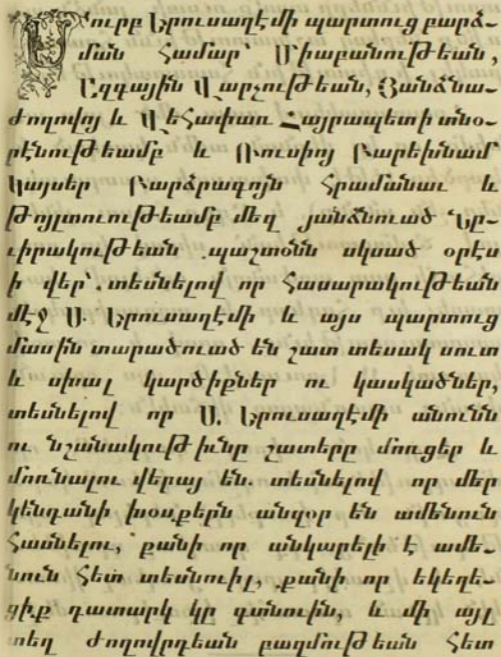 Սուրբ Երուսաղէմի պարտուց բարձ-
ման համար՝ Միաբանութեան,
Ազգային Վարչութեան, Յանձնա-
ժողովոյ և Վեհափառ Հայրապետի տնօ-
րէնութեամբ և Ռուսիոյ Բարեխնամ՝
Կայսեր Բարձրագոյն հրամանաւ և
թոյլտուութեամբ մեզ յանձնուած Նը-
ւիրակութեան պաշտօնն սկսած օրէս
ի վեր՝ տեսնելով որ հասարակութեան
մէջ Ս. Երուսաղէմի և այս պարտուց
մասին տարածուած են շատ տեսակ սուտ
և սխալ կարծիքներ ու կասկածներ,
տեսնելով որ Ս. Երուսաղէմի անունն
ու նշանակութիւնը շատերը մոռցեր և
մոռնալու վերայ են. տեսնելով որ մեր
կենդանի խօսքերն անզօր են ամենուն
հասնելու, քանի որ անկարելի է ամե-
նուն հետ տեսնուիլ, քանի որ եկեղե-
ցիք դատարկ կը գտնուին, և մի այլ
տեղ ժողովրդեան բազմութեան հետ